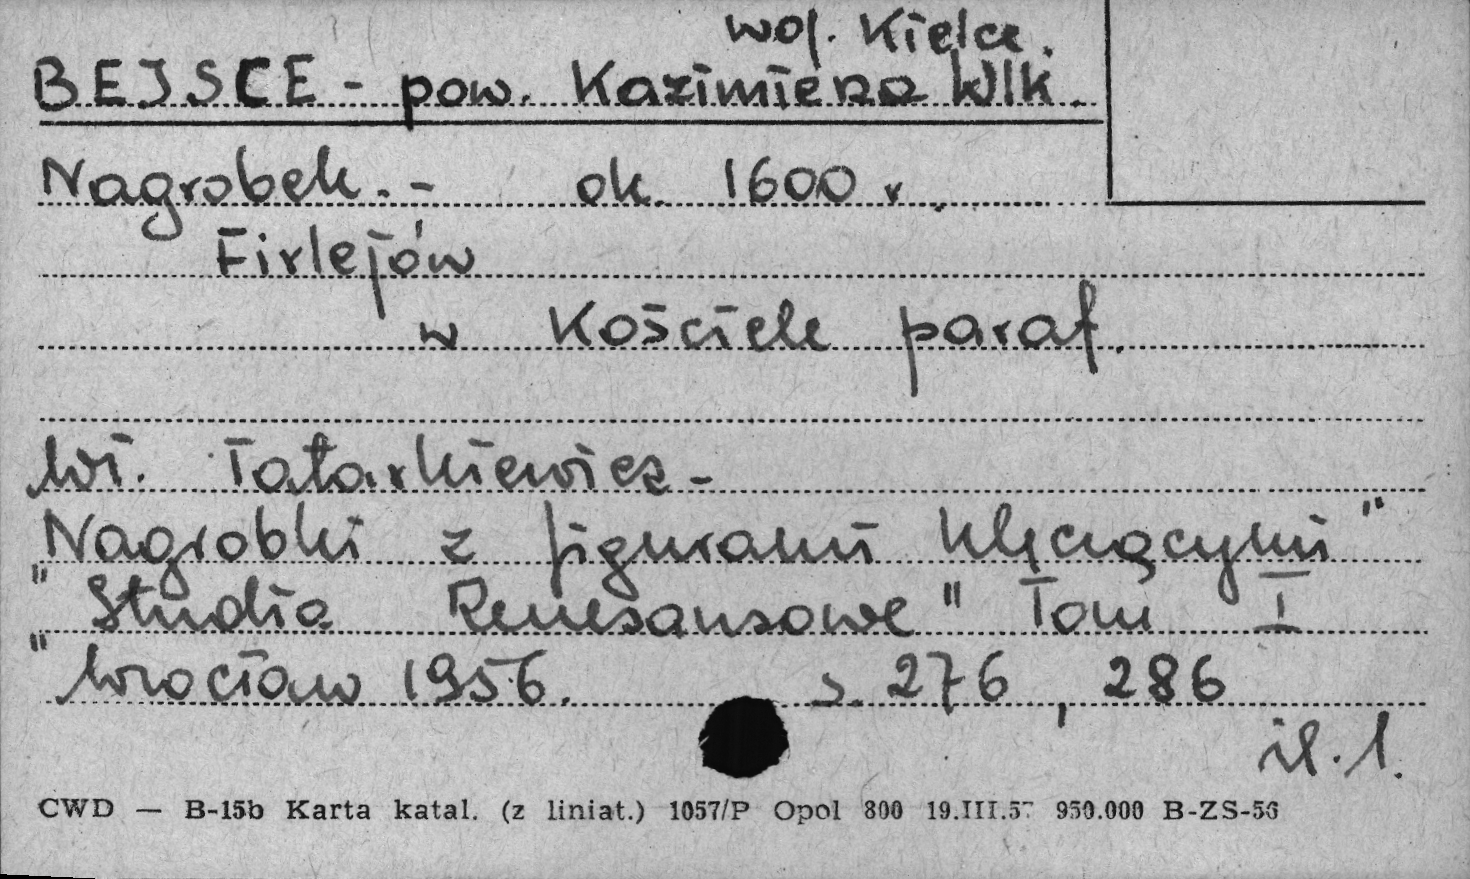 woj. Kielce.
BEJSCE - pow. Kazimierza Wlk.
Nagrobek. - ok. 1600 r.
Firlejów
w Kościele paraf.
Wł. Tatarkiewicz -
Nagrobki z figurami klęczącymi"
" Studia Renesansowe" Tom I
" Wrocław 1956. s. 276, 286
il. 1.
CWD — B-15b Karta katal. (z liniat.) 1057/P Opol 800 19.III.57 950.000 B-ZS-56